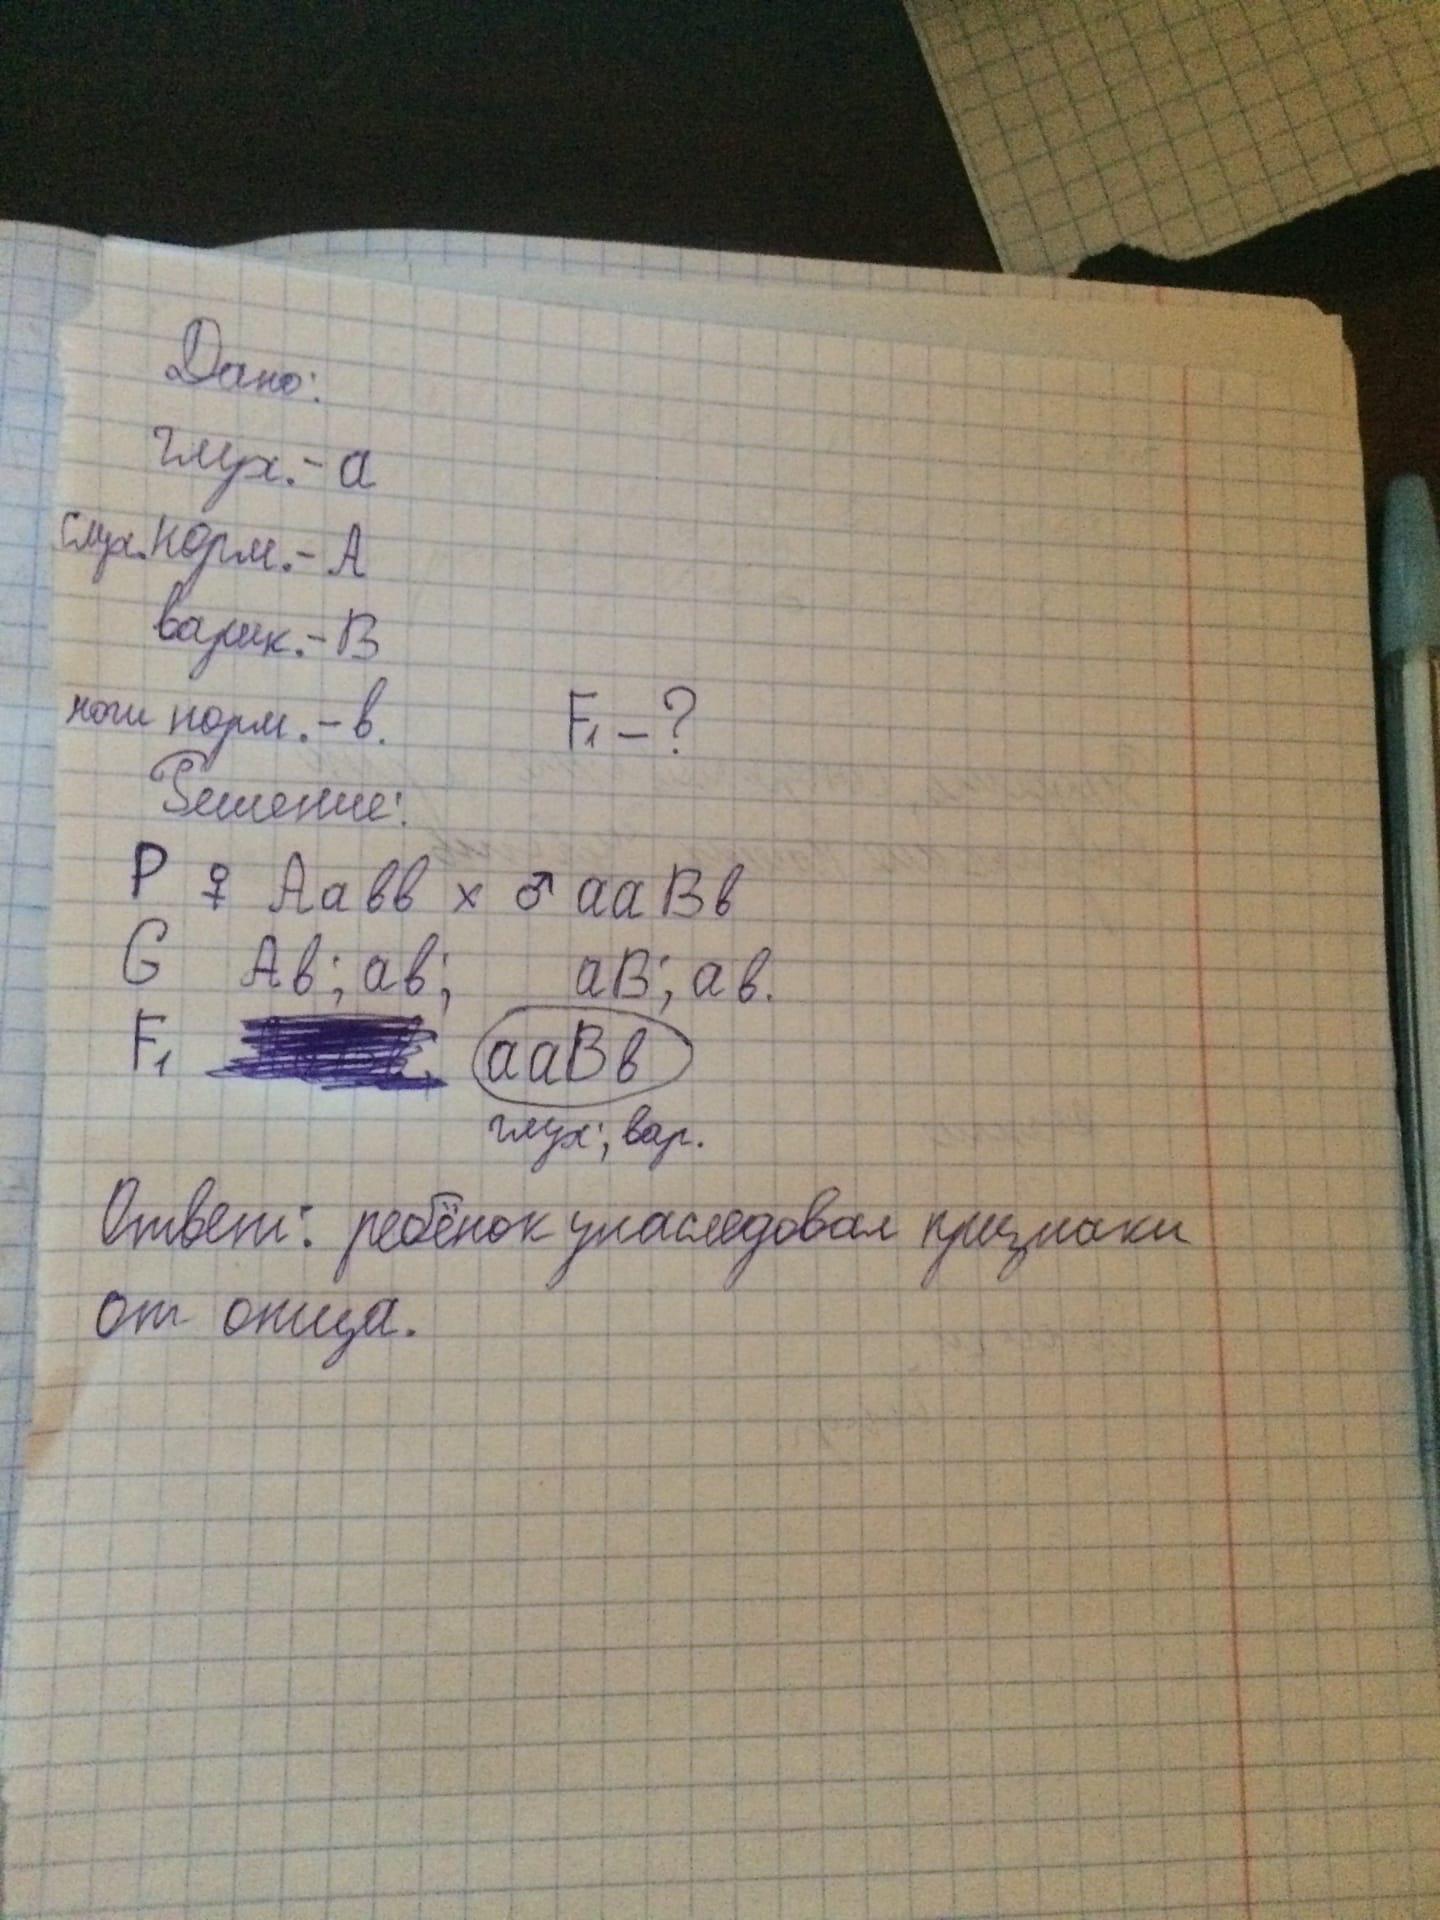 Дано:
глух. - а
слух. норм. - А
варик. - В
ноги норм. - в.
F₁ - ?
Решение:
Р ♀ Аавв х ♂ ааВв
G Ав; ав; аВ; ав.
F₁ ааВв
глух; вар.
Ответ: ребёнок унаследовал признаки
от отца.